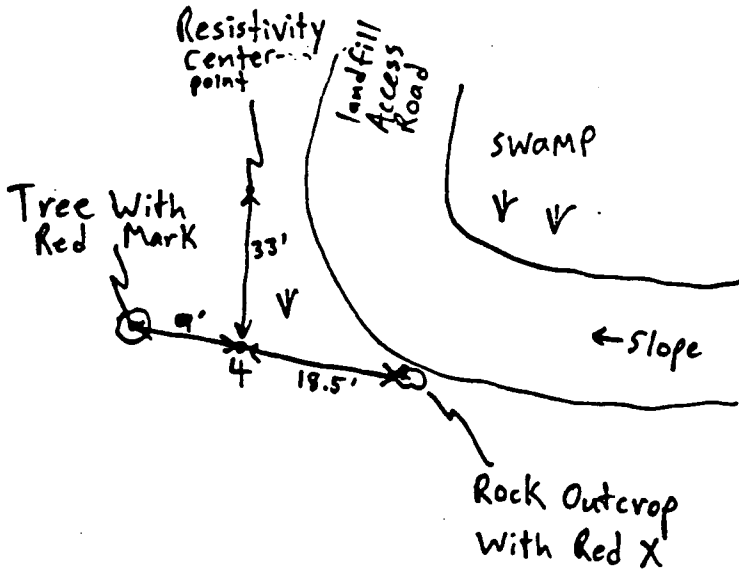 Resistivity
center-
point
landfill
Access
Road
swamp
Tree With
Red Mark
33'
9'
4
18.5'
←Slope
Rock Outcrop
With Red X